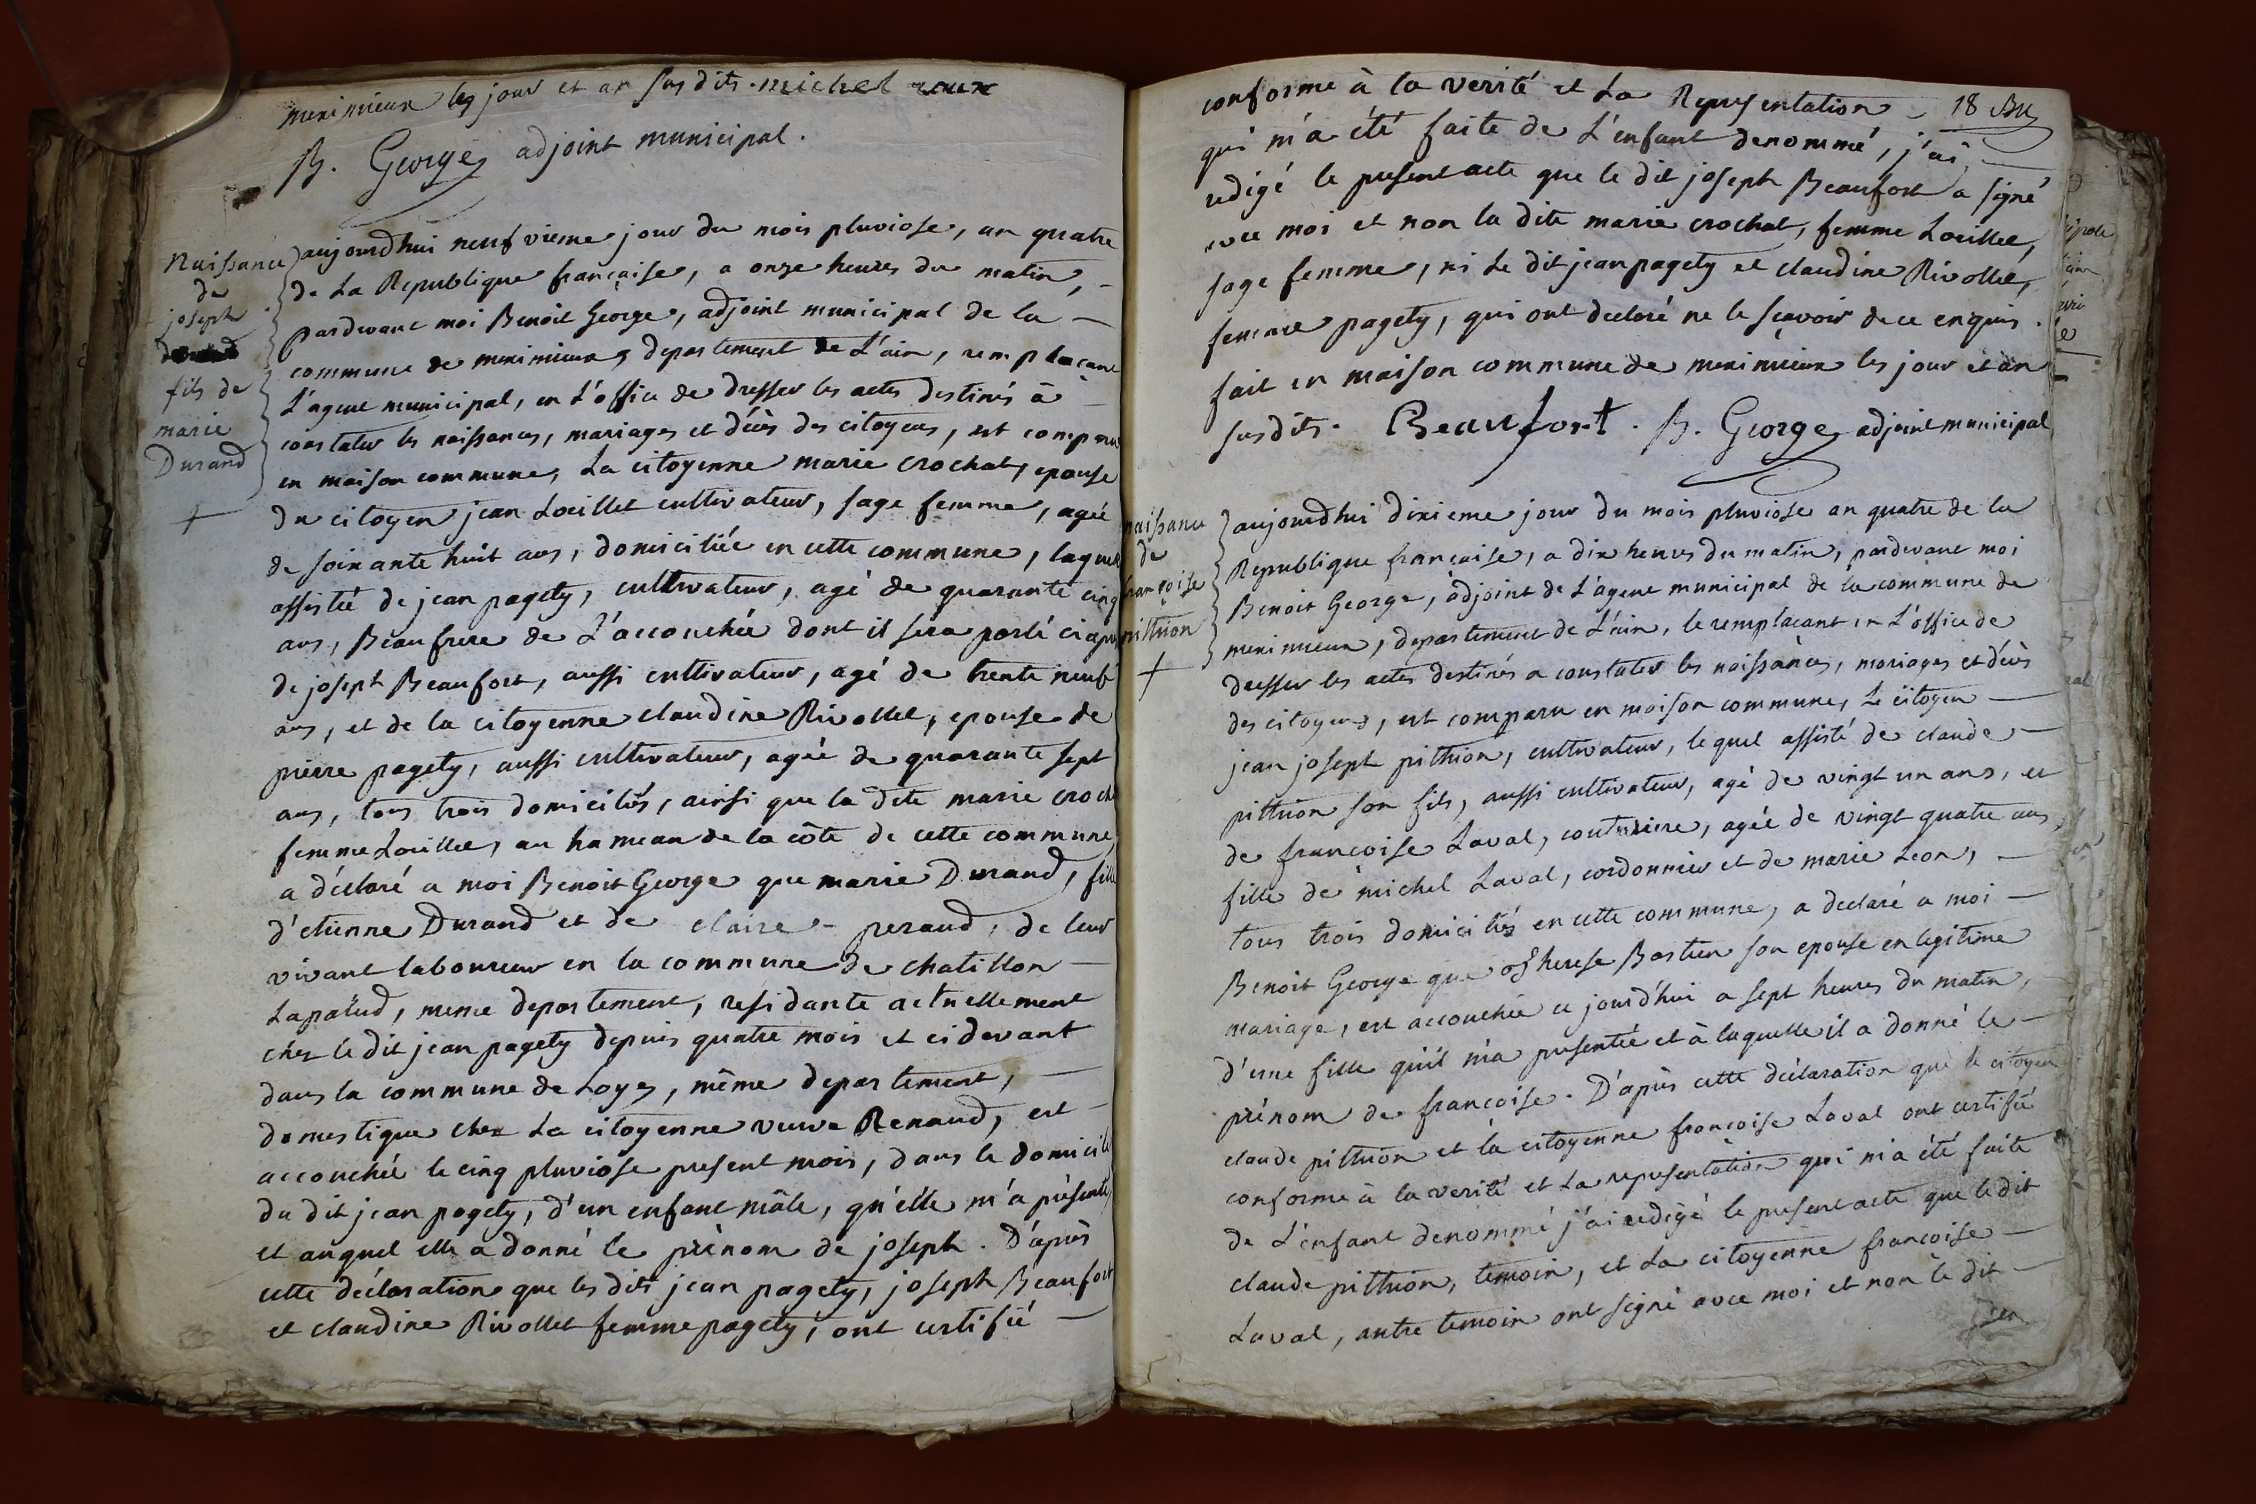 meximieux les jour et an susdits. michel roux
B. George adjoint municipal.
Naissance
de
joseph
fils de
marie
Durand
aujourdhui neufvieme jour du mois pluviose, an quatre
de La Republique française, a onze heures du matin,
pardevant moi Benoit George, adjoint municipal de la
commune de meximieux, departement de L'ain, remplacant
L'agent municipal, en L'office de dresser les actes destinés à
constater les naissances, mariages et décès des citoyens, est comparue
en maison commune, La citoyenne marie crochat, epouse
du citoyen jean Loeillet cultivateur, sage femme, agée
de soixante huit ans, domiciliée en cette commune, laquelle
assistée de jean pagety, cultivateur, agé de quarante cinq
ans, Beaufrere de L'accouchée dont il sera parlé ci après
de joseph Beaufort, aussi cultivateur, agé de trente neuf
ans, et de la citoyenne claudine Rivollet, epouse de
pierre pagety, aussi cultivateur, agée de quarante sept
ans, tous trois domiciliés, ainsi que la dite marie croch
femme Loeillet, au hameau de la côte de cette commune,
a déclaré a moi Benoit George que marie Durand, fille
d'etienne Durand et de claire peraud, de leur
vivant laboureur en la commune de chatillon
Lapalud, meme departement, residante actuellement
chez le dit jean pagety depuis quatre mois et cidevant
dans la commune de Loyes, même departement,
domestique chez La citoyenne veuve Renaud, est
accouchée le cinq pluviose present mois, dans le domicile
du dit jean pagety, d'un enfant mâle, qu'elle m'a présenté,
et auquel elle a donné le prénom de joseph. D'après
cette déclaration que les dits jean pagety, joseph Beaufort
et claudine Rivollet femme pagety, ont certifié
18 Bu
conforme à la verité et La Representation
qui m'a été faite de L'enfant denommé, j'ai
redigé le present acte que le dit joseph Beaufort a signé
avec moi et non la dite marie crochat, femme Loeillet,
sage femme, ni Le dit jean pagety et claudine Rivollet,
femme pagety, qui ont declaré ne le sçavoir de ce enquis.
fait en maison commune de meximieux les jour et an
susdits. Beaufort. B. George adjoint municipal
naissance
de
françoise
pitthion
aujourdhui dixieme jour du mois pluviose an quatre de la
Republique française, a dix heures du matin, pardevant moi
Benoit George, adjoint de L'agent municipal de la commune de
meximieux, departement de L'ain, le remplacant en L'office de
dresser les actes destinés a constater les naissances, mariages et décès
des citoyens, est comparu en maison commune, Le citoyen
jean joseph pitthion, cultivateur, lequel assisté de claude
pitthion son fils, aussi cultivateur, agé de vingt un ans, et
de françoise Laval, couturiere, agée de vingt quatre ans,
fille de michel Laval, cordonnier et de marie Leon,
tous trois domiciliés en cette commune, a declaré a moi
Benoit George que Therese Bastien son epouse en legitime
mariage, est accouchée ce jourd'hui a sept heures du matin,
d'une fille qu'il m'a presentée et à laquelle il a donné le
prénom de françoise. D'après cette déclaration que le citoyen
claude pitthion et la citoyenne françoise Laval ont certifié
conforme à la verité et La representation qui m'a été faite
de L'enfant denommé j'ai redigé le present acte que le dit
claude pitthion, temoin, et La citoyenne françoise
Laval, autre temoin ont signé avec moi et non le dit
jean